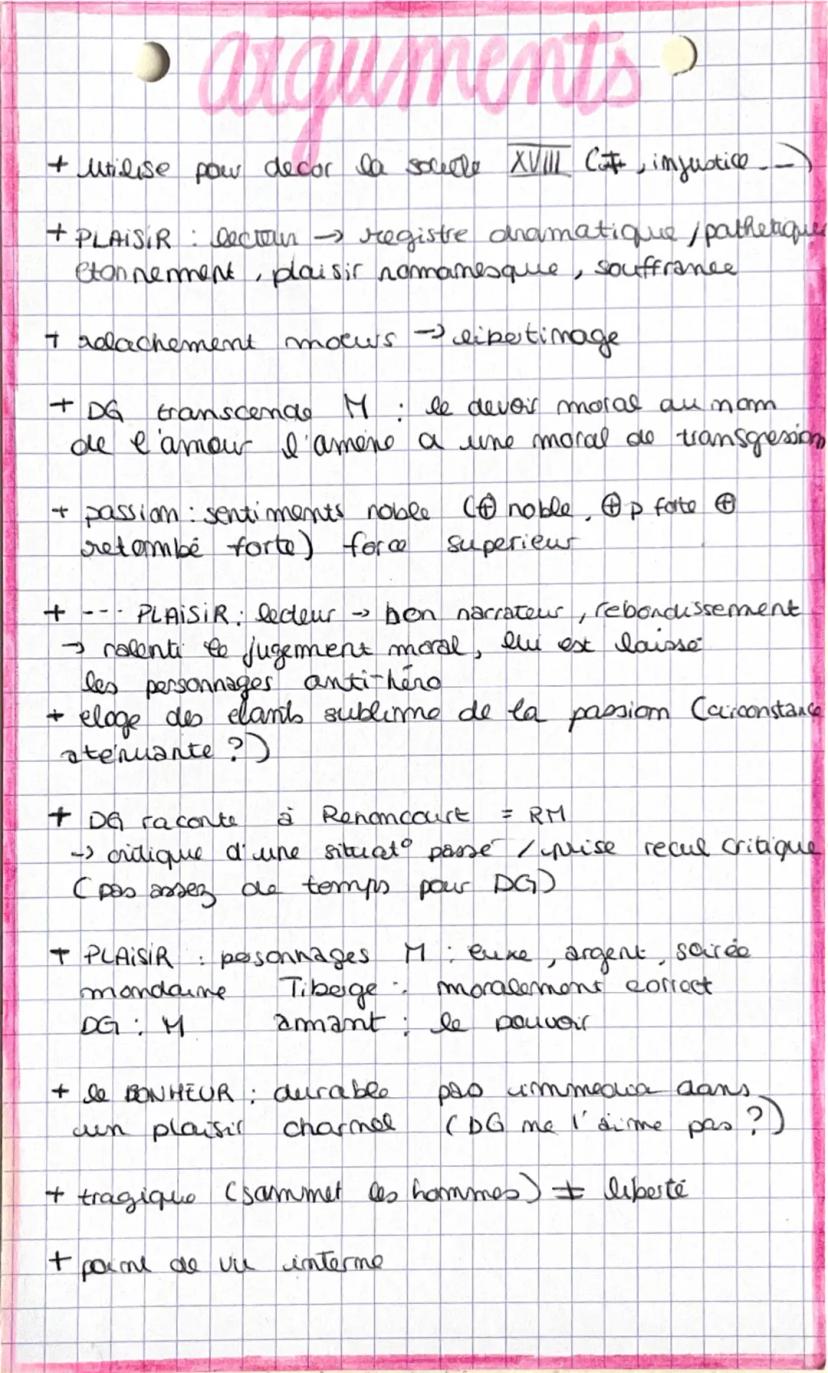 arguments
+ utilise pour decor la societe XVIII (, injustice ...)
+ PLAISIR : lecteur → registre dramatique / pathetique
étonnement, plaisir romanesque, souffrance
+ relachement moeurs → libertinage
+ DG transcende M : le devoir moral au nom
de l'amour l'amène a une moral de transgression
+ passion : sentiments noble (⊕ noble, ⊕ p forte ⊕
retombé forte) force superieur
+ --- PLAISIR : lecteur → bon narrateur, rebondissement
→ ralenti le jugement moral, lui est laissé
les personnages anti-héro
+ eloge des élants sublime de la passion (circonstance
aténuante ?)
+ DG raconte à Renoncourt = RM
→ critique d'une situat° passé / prise recul critique
(pas assez de temps pour DG)
+ PLAISIR : personnages M : luxe, argent, soirée
mondaine Tiberge : moralement correct
DG : M amant : le pouvoir
+ le BONHEUR : durable pas immediat dans
un plaisir charnel (DG ne l'aime pas ?)
+ tragique (sammet les hommes) ≠ liberté
+ point de vu interne